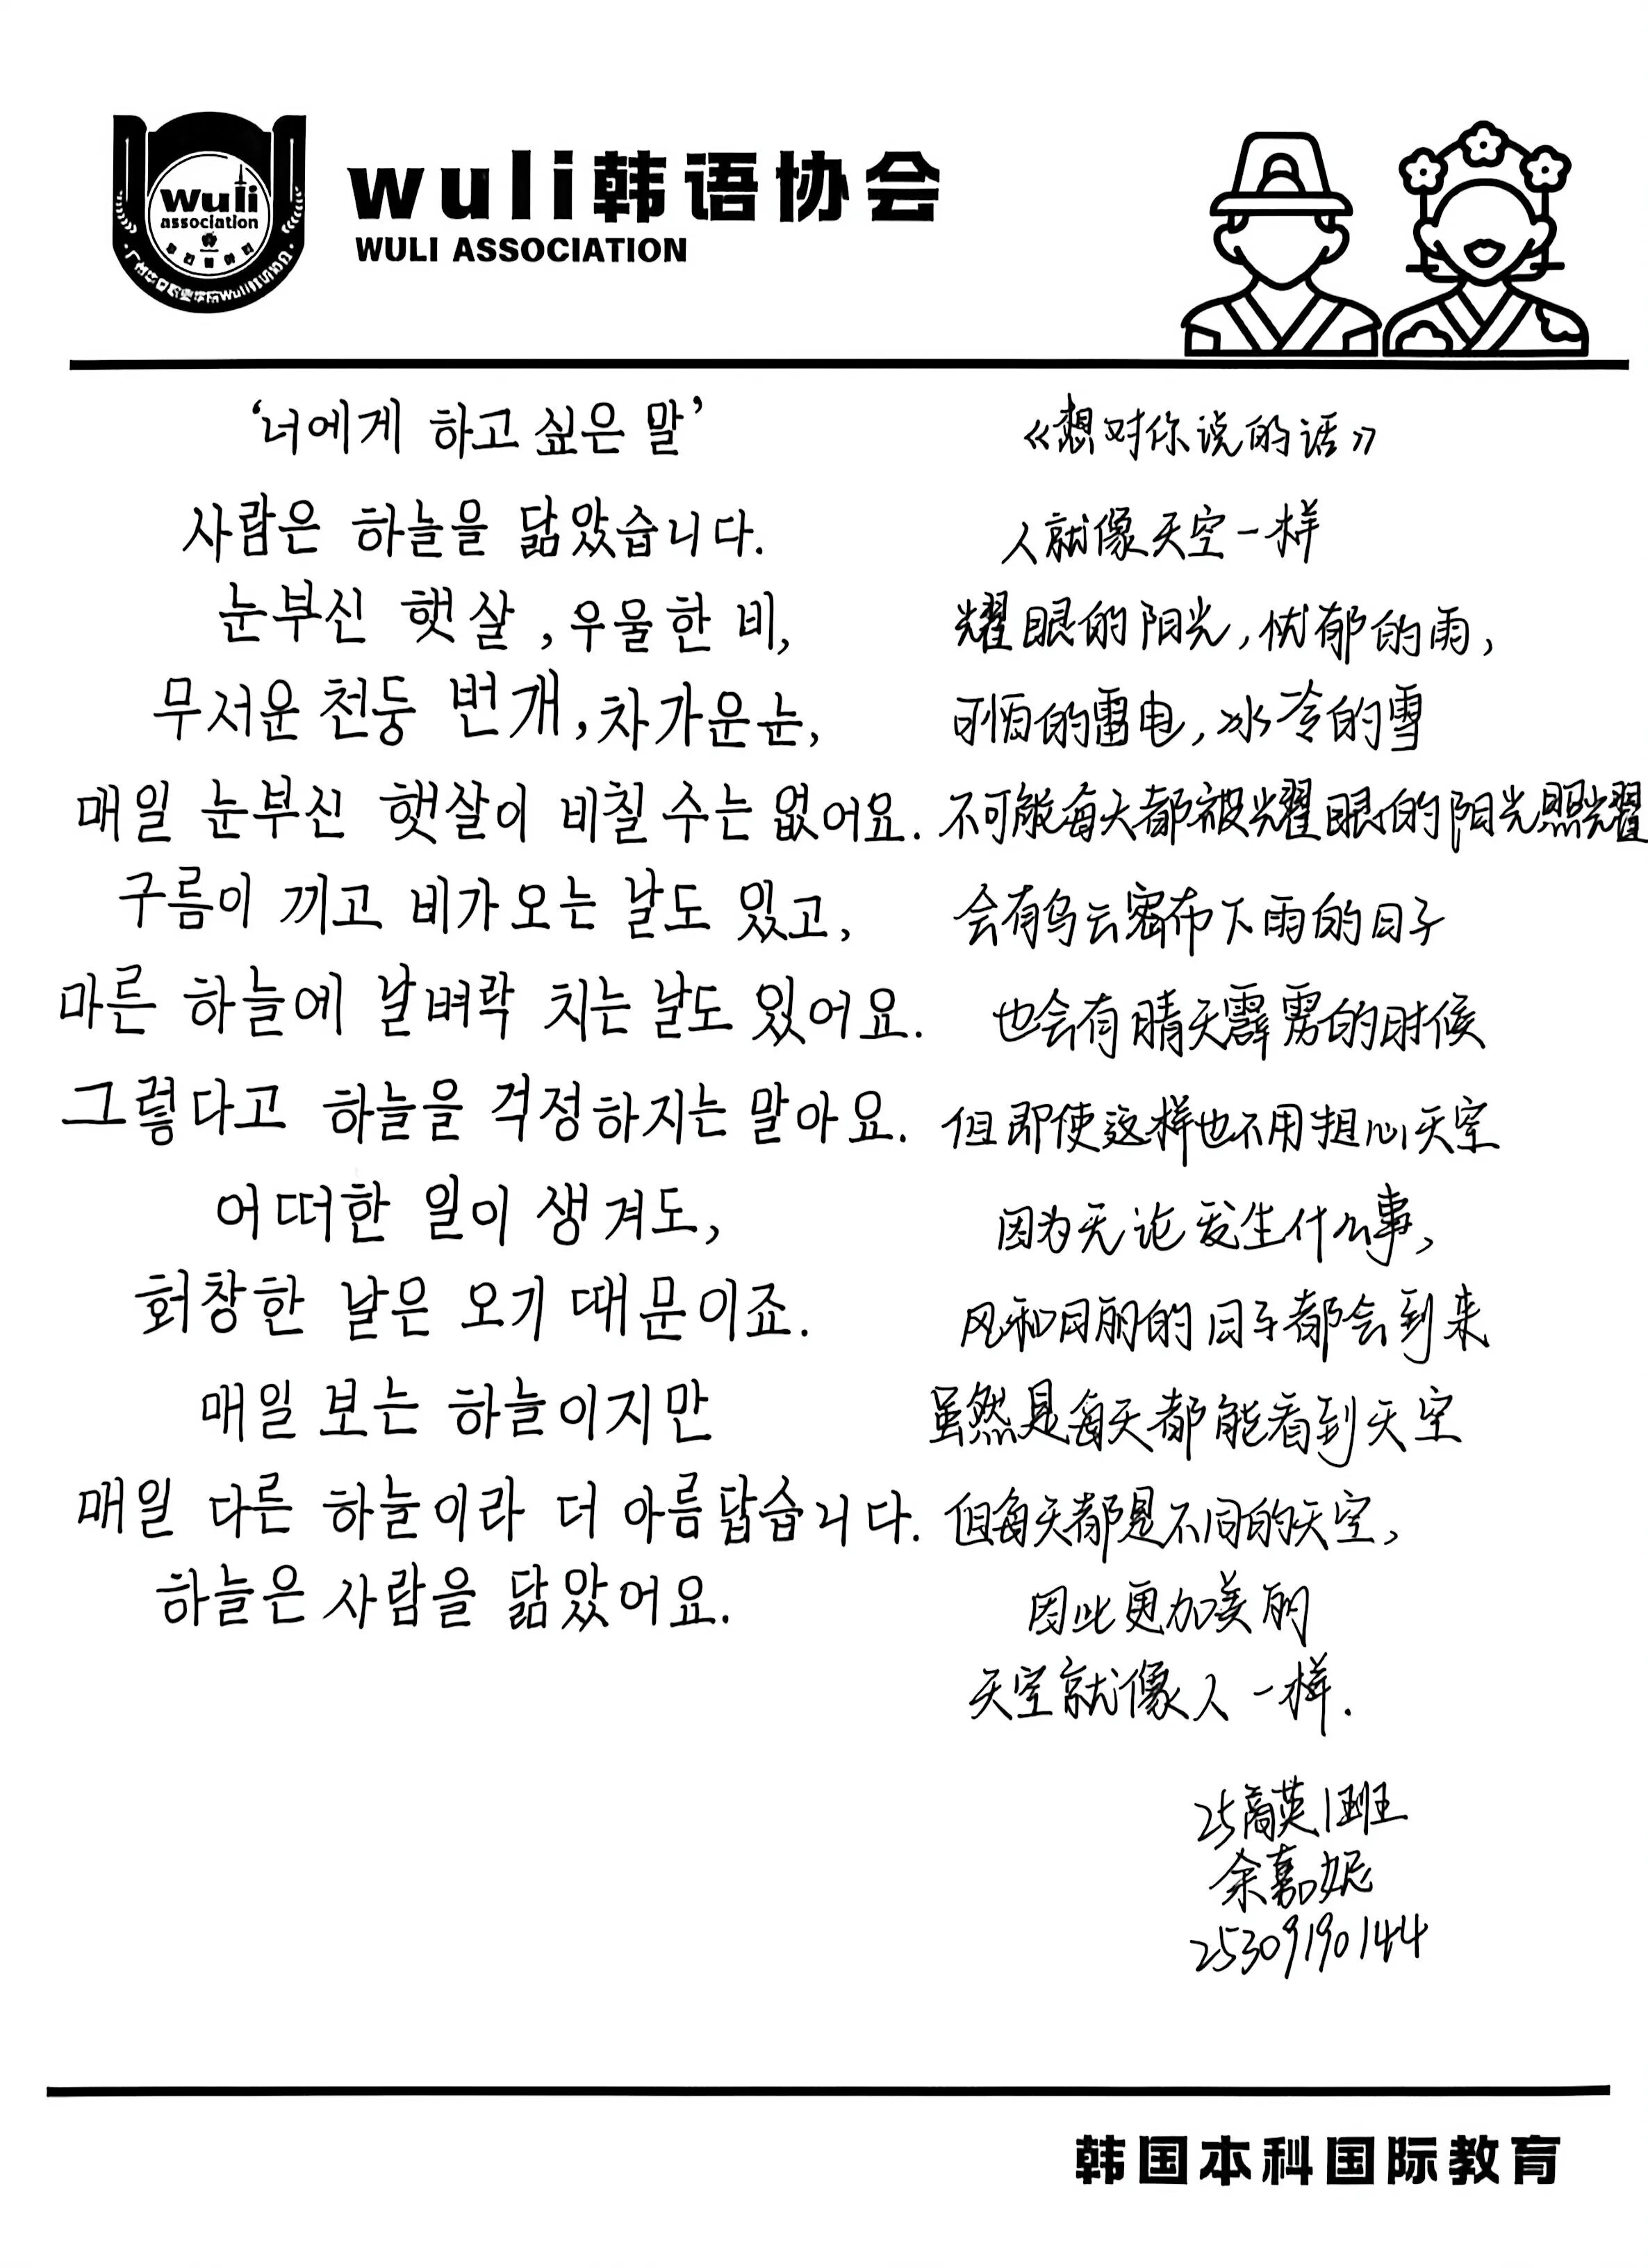 wuli
association
wuli韩语协会
WULI ASSOCIATION
‘너에게 하고 싶은 말’
사람은 하늘을 닮았습니다.
눈부신 햇살,우울한 비,
무서운 천둥 번개,차가운눈,
매일 눈부신 햇살이 비칠 수는 없어요.
구름이 끼고 비가 오는 날도 있고,
마른 하늘에 날벼락 치는 날도 있어요.
그렇다고 하늘을 걱정하지는 말아요.
어떠한 일이 생겨도,
화창한 날은 오기 때문이죠.
매일 보는 하늘이지만
매일 다른 하늘이라 더 아름답습니다.
하늘은 사람을 닮았어요.
《想对你说的话》
人就像天空一样
耀眼的阳光,忧郁的雨,
可怕的雷电,冰冷的雪
不可能每天都被耀眼的阳光照耀
会有乌云密布下雨的日子
也会有晴天霹雳的时候
但即使这样也不用担心天空
因为无论发生什么事,
风和日丽的日子都会到来
虽然是每天都能看到天空
但每天都是不同的天空,
因此更加美丽
天空就像人一样.
25高英1班
余嘉妮
25309190144
韩国本科国际教育